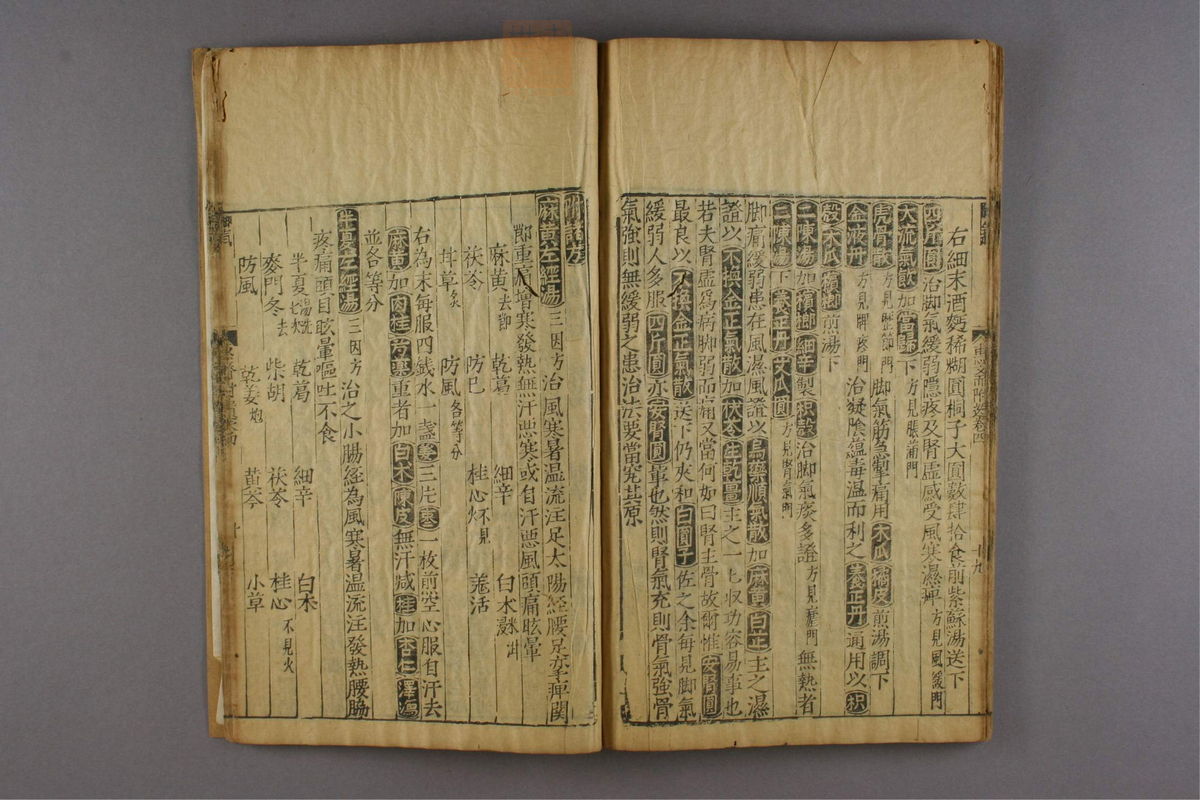 右細末酒麪稀糊圓桐子大圓數肆拾食前紫蘇湯送下
四斤圓 治脚氣緩弱隱疼及腎虛感受風寒濕痺 方見風緩門
大流氣飲加當歸下 方見脹滿門
虎骨散 方見歷節門 脚氣筋急掣痛用木瓜橘皮煎湯調下
金液丹 方見 門 治凝陰蘊毒溫而利之養正丹通用以枳
殼木瓜檳榔煎湯下
二陳湯加檳榔細辛製枳殼治脚氣痰多證 方見瘧門 無熱者
二陳湯下養正丹 木瓜圓 方見腎氣門
脚痛緩弱患在風濕風證以烏藥順氣散加麻黃白芷主之濕
證以不換金正氣散加茯苓生乾薑主之一匕收功容易事也
若夫腎虛為病脚弱而痛又當何如曰腎主骨故爾惟安腎圓
最良以不換金正氣散送下仍夾和白圓子佐之余每見脚氣
緩弱人多服四斤圓亦安腎圓軰也然則腎氣充則骨氣強骨
氣強則無緩弱之患治法要當究其原
附諸方
麻黃左經湯 三因方治風寒暑温流注足太陽經腰足攣痺關
節重痛增寒發熱無汗惡寒或自汗惡風頭痛眩暈
麻黃 去節 乾葛 細辛 白木 泔
茯苓 防巳 桂心 不見 羗活
甘草 炙 防風 各等分
右為末每服四錢水一盞姜三片棗一枚煎空心服自汗去
麻黃加肉桂芍藥重者加白木陳皮無汗減桂加杏仁澤瀉
並各等分
半夏左經湯 三因方治之小腸經為風寒暑温流注發熱腰脇
疼痛頭目眩暈嘔吐不食
半夏 湯洗七次 乾葛 細辛 白木
麥門冬 去 柴胡 茯苓 桂心 不見火
防風 乾姜 炮 黃芩 小草